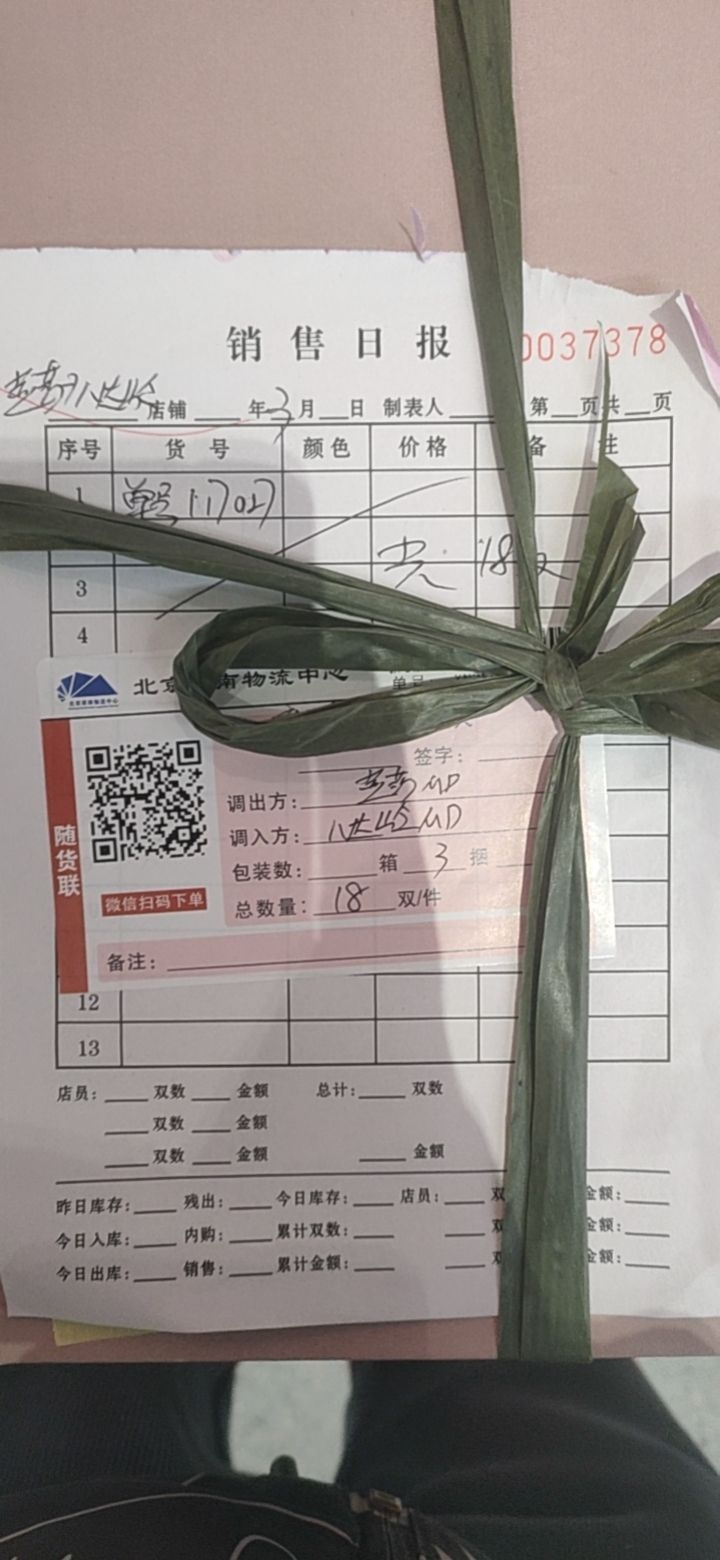 销售日报
0037378
店铺 年 3 月 日 制表人 第 页共 页
序号 货号 颜色 价格 备注
1 单号 117027
共 18双
3
4
北京 南物流中心
单号
签字：
调出方：
调入方： 八达岭MD
随货联
包装数： 箱 3 捆
微信扫码下单
总数量： 18 双/件
备注：
12
13
店员： 双数 金额 总计： 双数
双数 金额
双数 金额 金额
昨日库存： 残出： 今日库存： 店员： 双 金额：
今日入库： 内购： 累计双数： 双 金额：
今日出库： 销售： 累计金额： 双 金额：